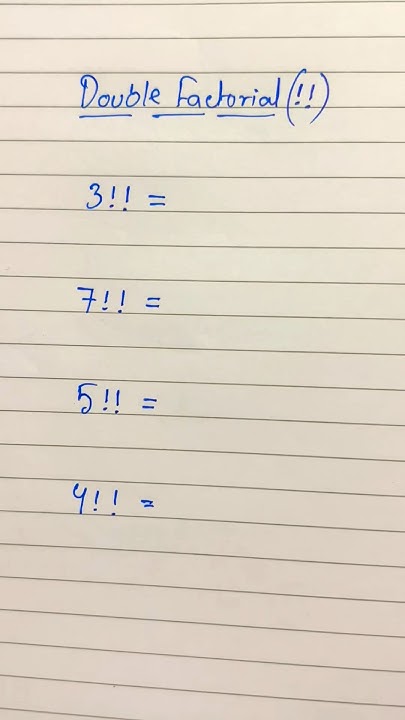 Double Factorial (!!)
3!! =
7!! =
5!! =
4!! =